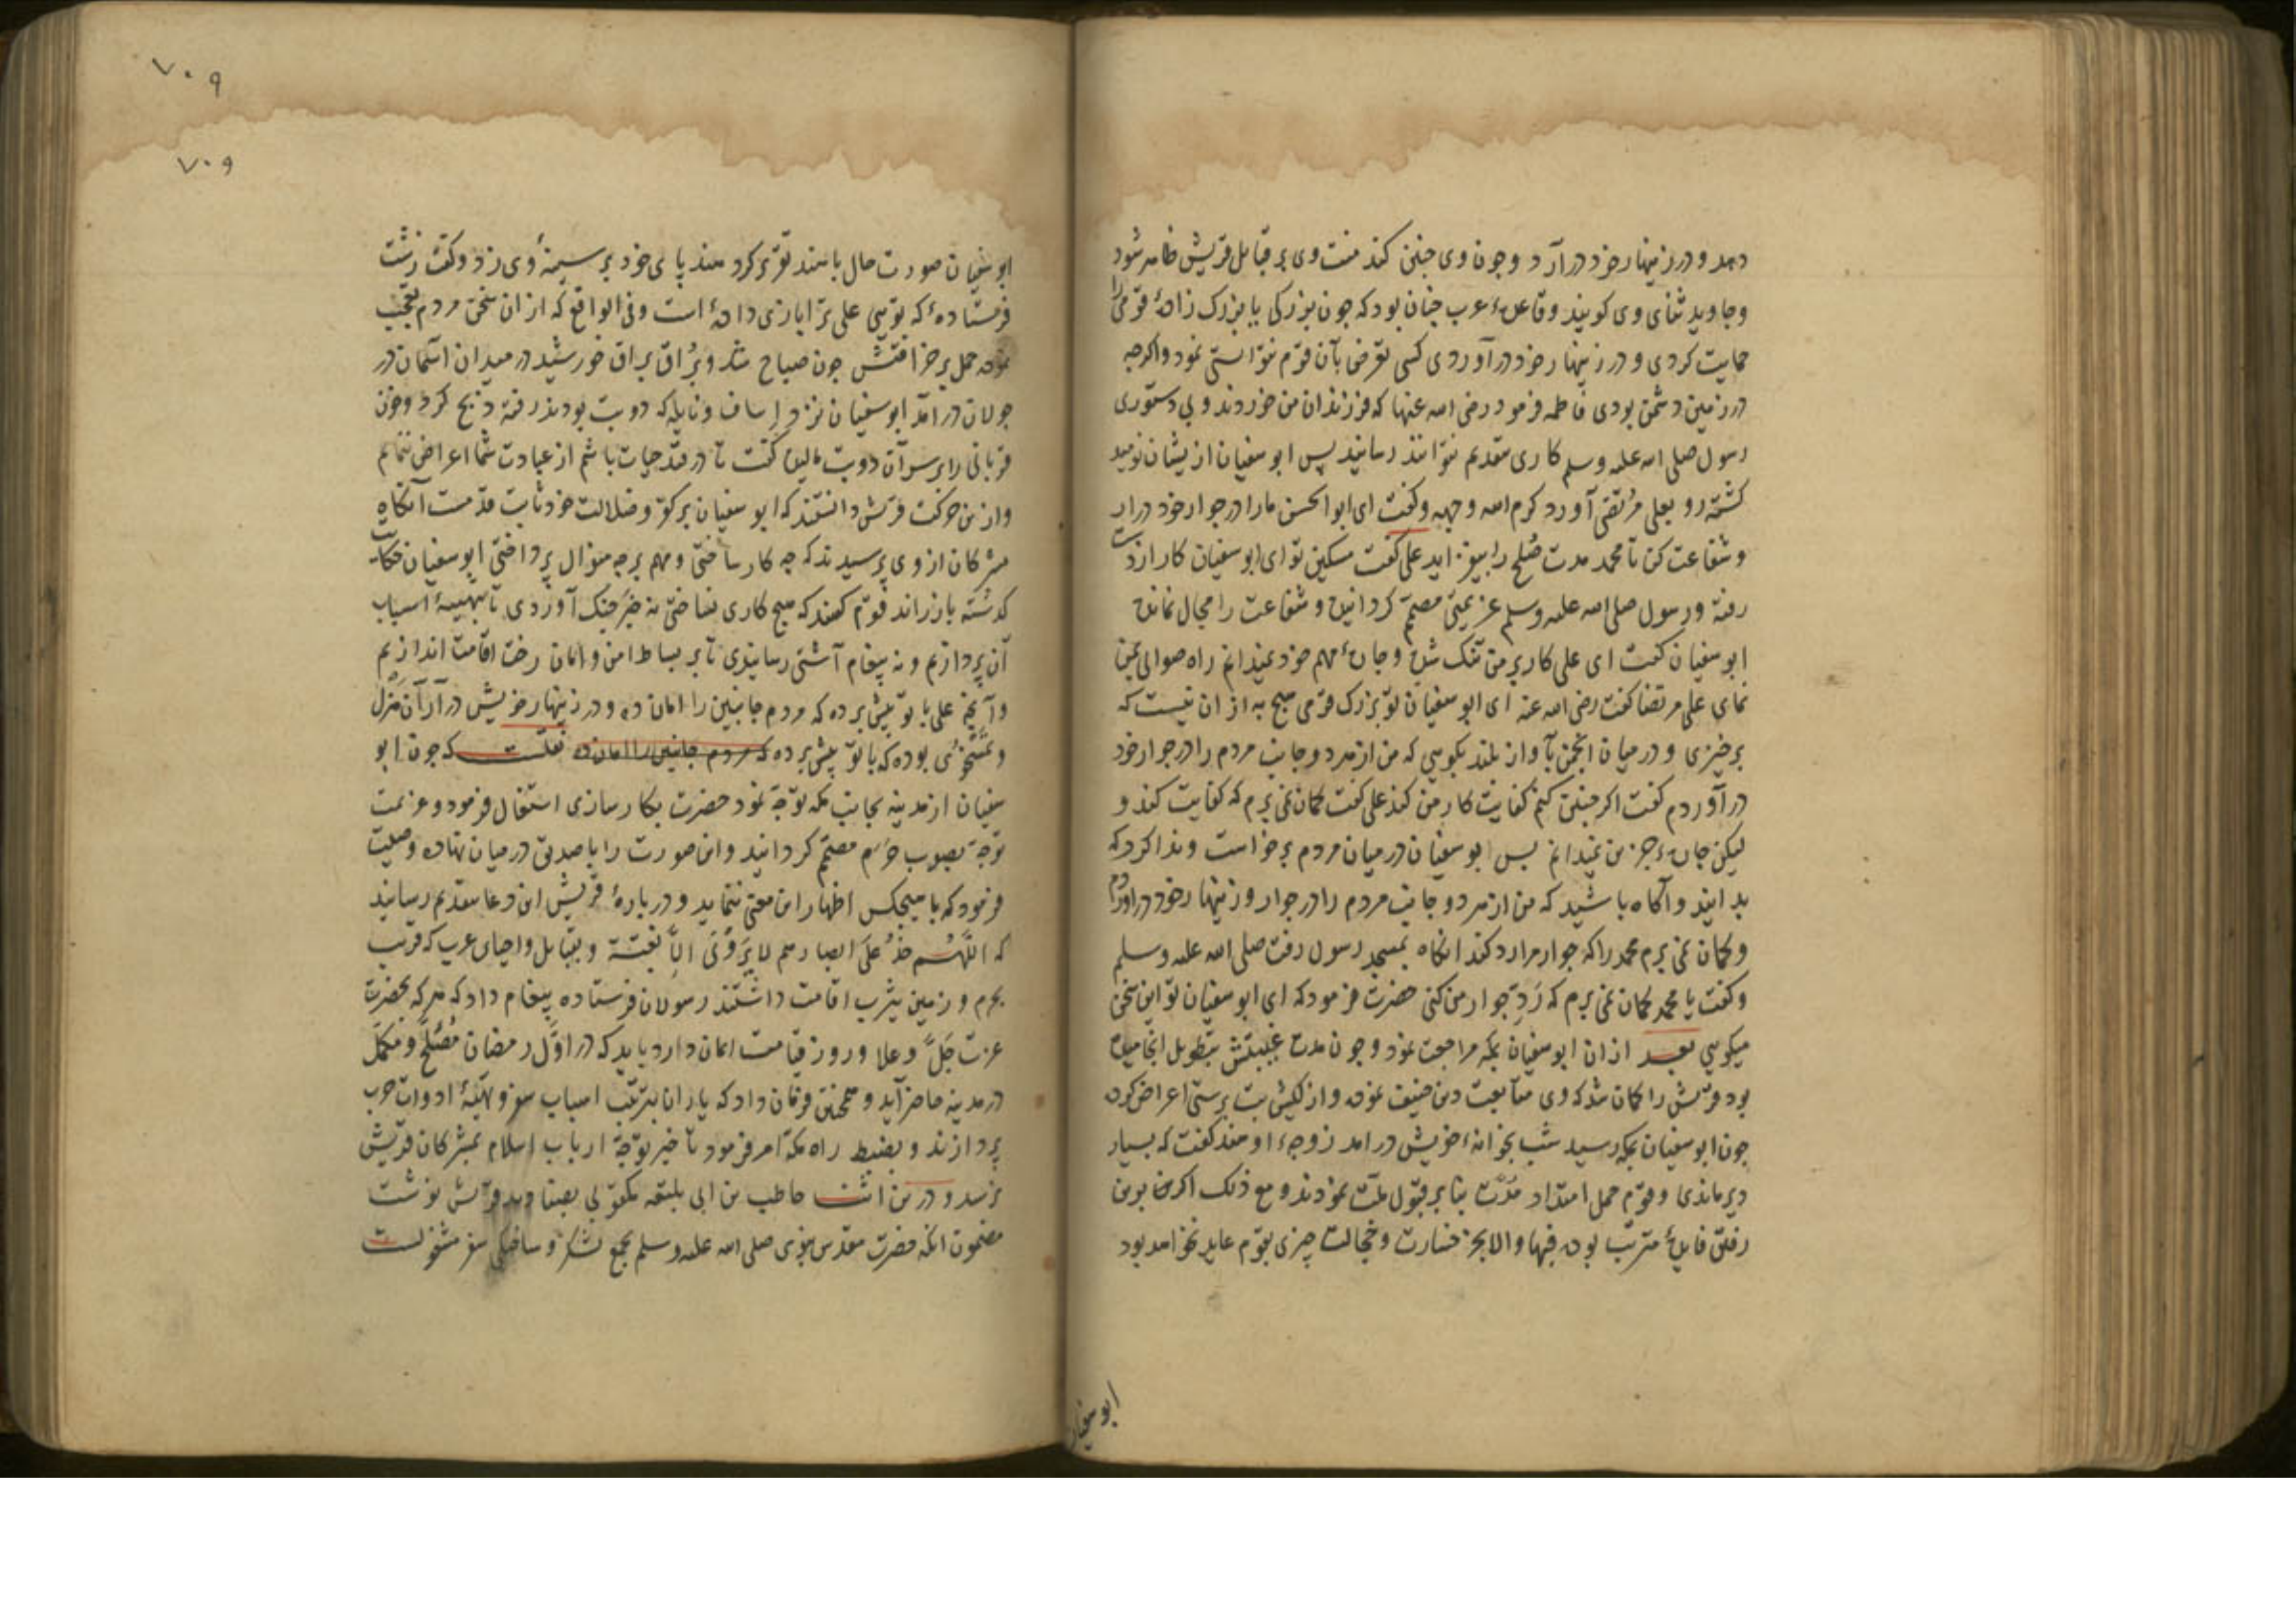 دهد و در زینهار خود در آرد و چون وی چنین کند منت وی بر قبایل قریش ظاهر شود
و جاوید ثنای وی کویند و قاعدهٔ عرب چنان بود که چون بزرکی یا بزرک زادهٔ قومی را
حمایت کردی و در زینهار خود در آوردی کسی تعرض بآن قوم نتوانستی نمود و اکرچه
در زمین دشمن بودی فاطمه فرمود رضی الله عنها که فرزندان من خردند و بی دستوری
رسول صلی الله علیه وسلم کاری بتقدیم نتوانند رسانید پس ابو سفیان ازیشان نومید
کشته رو بعلی مرتضی آورد کرم الله وجهه و کفت ای ابو الحسن مارا در جوار خود در ار
و شفاعت کن تا محمد مدت صلح را بیفزاید علی کفت مسکین تو ای ابو سفیان کار از دست
رفته و رسول صلی الله علیه وسلم عزیمتی مصمم کردانیده و شفاعت را مجال نمانده
ابو سفیان کفت ای علی کار بر من تنک شده و چارهٔ مهم خود نمیدانم راه صوابی بمن
نمای علی مرتضا کفت رضی الله عنه ای ابو سفیان تو بزرک قومی هیچ به از ان نیست که
برخیزی و در میان انجمن بآواز بلند بکویی که من از هر دو جانب مردم را در جوار خود
در آوردم کفت اکر چنین کنم کفایت کار من کند علی کفت کمان نمی برم که کفایت کند و
لیکن چارهٔ جز من نمیدانم پس ابو سفیان در میان مردم برخواست و ندا کرد که
بدانید و آکاه باشید که من از هر دو جانب مردم را در جوار و زینهار خود در اوردم
و کمان نمی برم محمد را که جوار مرا رد کند انکاه بمسجد رسول رفت صلی الله علیه وسلم
و کفت یا محمد کمان نمی برم که رد جوار من کنی حضرت فرمود که ای ابو سفیان تو این سخن
میکویی بعد از ان ابو سفیان بمکه مراجعت نمود و چون مدت غیبتش بتطویل انجامیده
بود قریش را کمان شد که وی متابعت دین حنیف نموده و از کیش بت پرستی اعراض کرده
چون ابو سفیان بمکه رسید شب بخوانهٔ خویش در امد زوجهٔ او هند کفت که بسیار
دیر ماندی و قوم حمل امتداد مدت بنا بر قبول ملت نمودند و مع ذلک اکر بدین
رفتن فایدهٔ مترتب بوده فبها و الا بجز خسارت و خجالت چیزی بقوم عاید نخواهد بود
ابو سفیان
۷۰۹
۷۰۹
ابو سفیان صورت حال با هند تقریر کرد هند پای خود بر سینهٔ وی زد و کفت زشت
فرستادهٔ که تویی علی ترا بازی داده است و فی الواقع که از ان سخن مردم تعجب
نموده حمل بر خرافتش چون صباح شد و براق براق خورشید در میدان آسمان در
جولان در آمد ابو سفیان نزد اساف و نایله که دو بت بودند رفته ذبح کرد و خون
قربانی را بر سر آن دو بت مالیده کفت تا در قید حیات باشم از عبادت شما اعراض ننمایم
و ازین حرکت قریش دانستند که ابو سفیان بر کفر و ضلالت خود ثابت قدمست آنکاه
مشرکان از وی پرسیدند که چه کار ساختی و مهم بر چه منوال پرداختی ابو سفیان حکایت
کذشته باز راند قوم کفتند که هیچ کاری نساختی نه خبر جنک آوردی تا بتهیهٔ اسباب
آن پردازیم و نه پیغام آشتی رسانیدی تا بر بساط امن و امان رخت اقامت اندازیم
و آنچه علی با تو پیش برده که مردم جانبین را امان ده و در زینهار خویش در آر آن هزل
و تمسخری بوده که با تو پیش برده که مردم جانبین را امان ده نقلست که چون ابو
سفیان از مدینه بجانب مکه توجه نمود حضرت بکارسازی اشتغال فرمود و عزیمت
توجه بصوب حرم مصمم کردانید و این صورت را با صدیق در میان نهاده وصیت
فرمود که با هیچکس اظهار این معنی ننماید و در بارهٔ قریش این دعا بتقدیم رسانید
که اللهم خذ علی ابصارهم لا یرونی الا بغتة و بقبایل و احیای عرب که قریب
بحرم و زمین یثرب اقامت داشتند رسولان فرستاده پیغام داد که هر که بحضرت
عزت جل و علا و روز قیامت ایمان دارد باید که در اول رمضان مصلح و مکمل
در مدینه حاضر آید و همچنین فرمان داد که یاران بترتیب اسباب سفر و تهیهٔ ادوات حرب
پردازند و بضبط راه مکه امر فرمود تا خبر توجه ارباب اسلام بمشرکان قریش
نرسد و درین اثنا حاطب بن ابی بلتعه مکتوبی بصنادید قریش نوشت
مضمون انکه حضرت مقدس نبوی صلی الله علیه وسلم بجمع لشکر و ساختکی سفر مشغولست